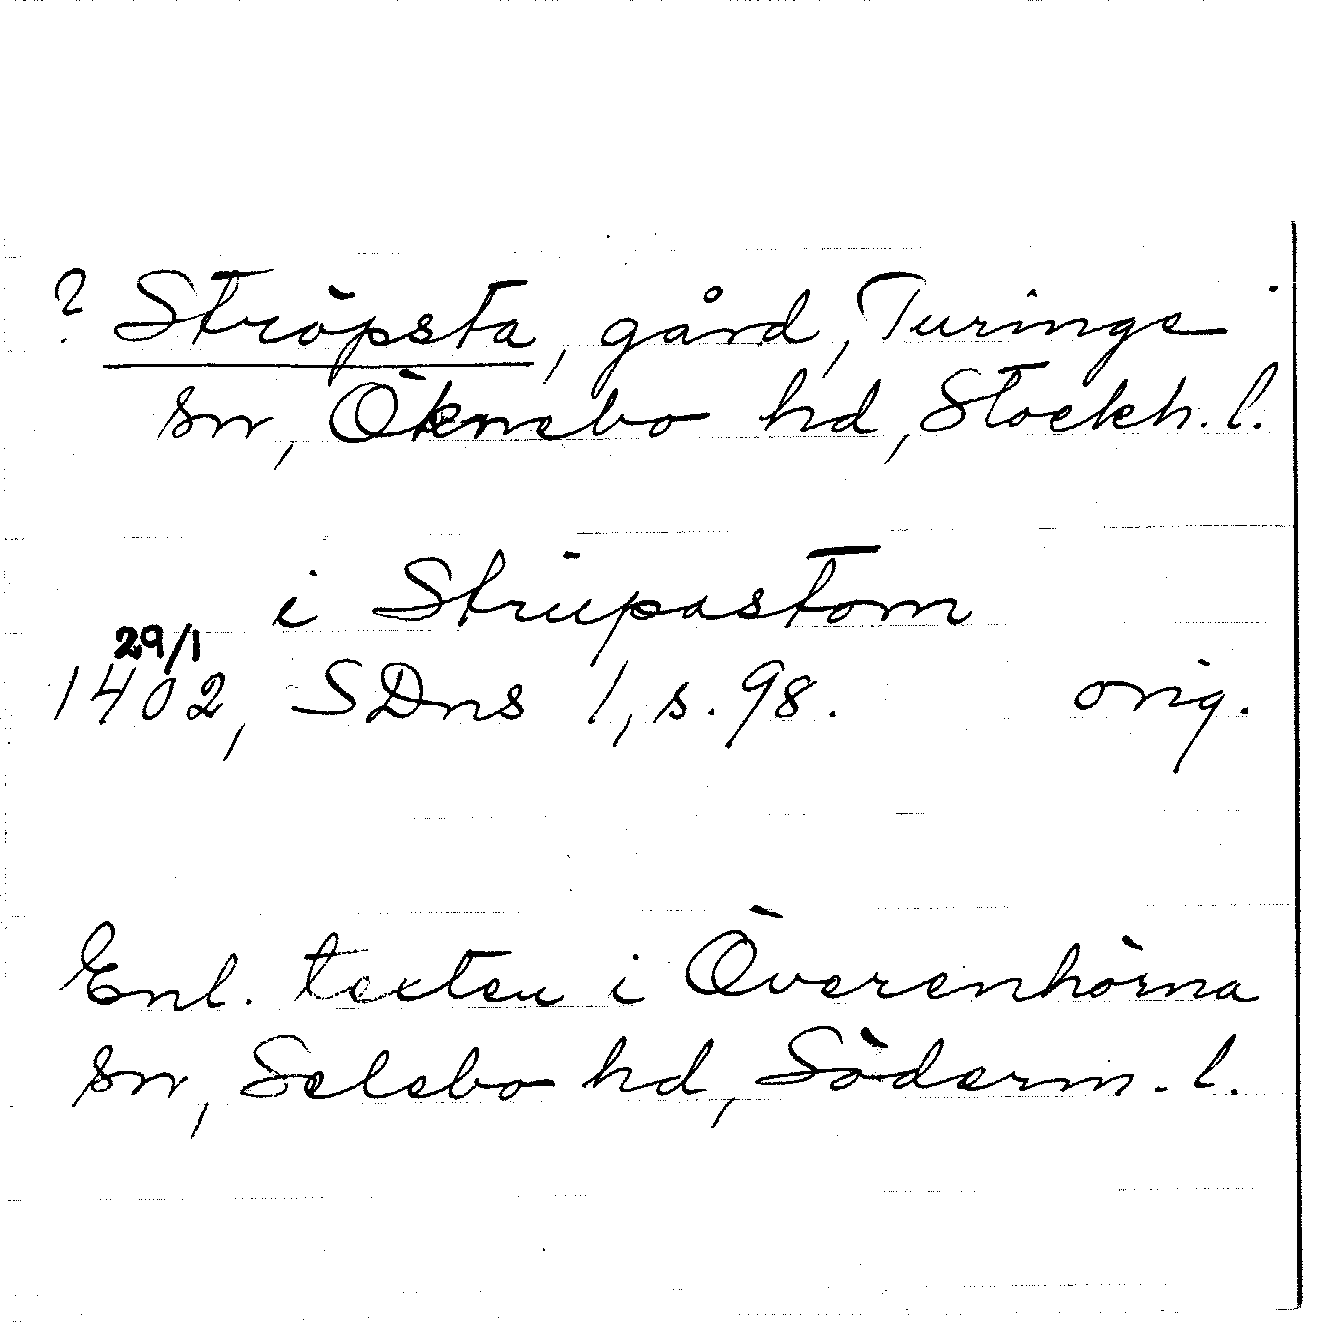 ? Ströpsta, gård, Turinge
sn, Öknebo hd, Stockh. l.
i Strüpastom
29/1
1402, SDns 1, s. 98. orig.
Enl. texten i Överenhörna
sn, Selebo hd, Söderm. l.